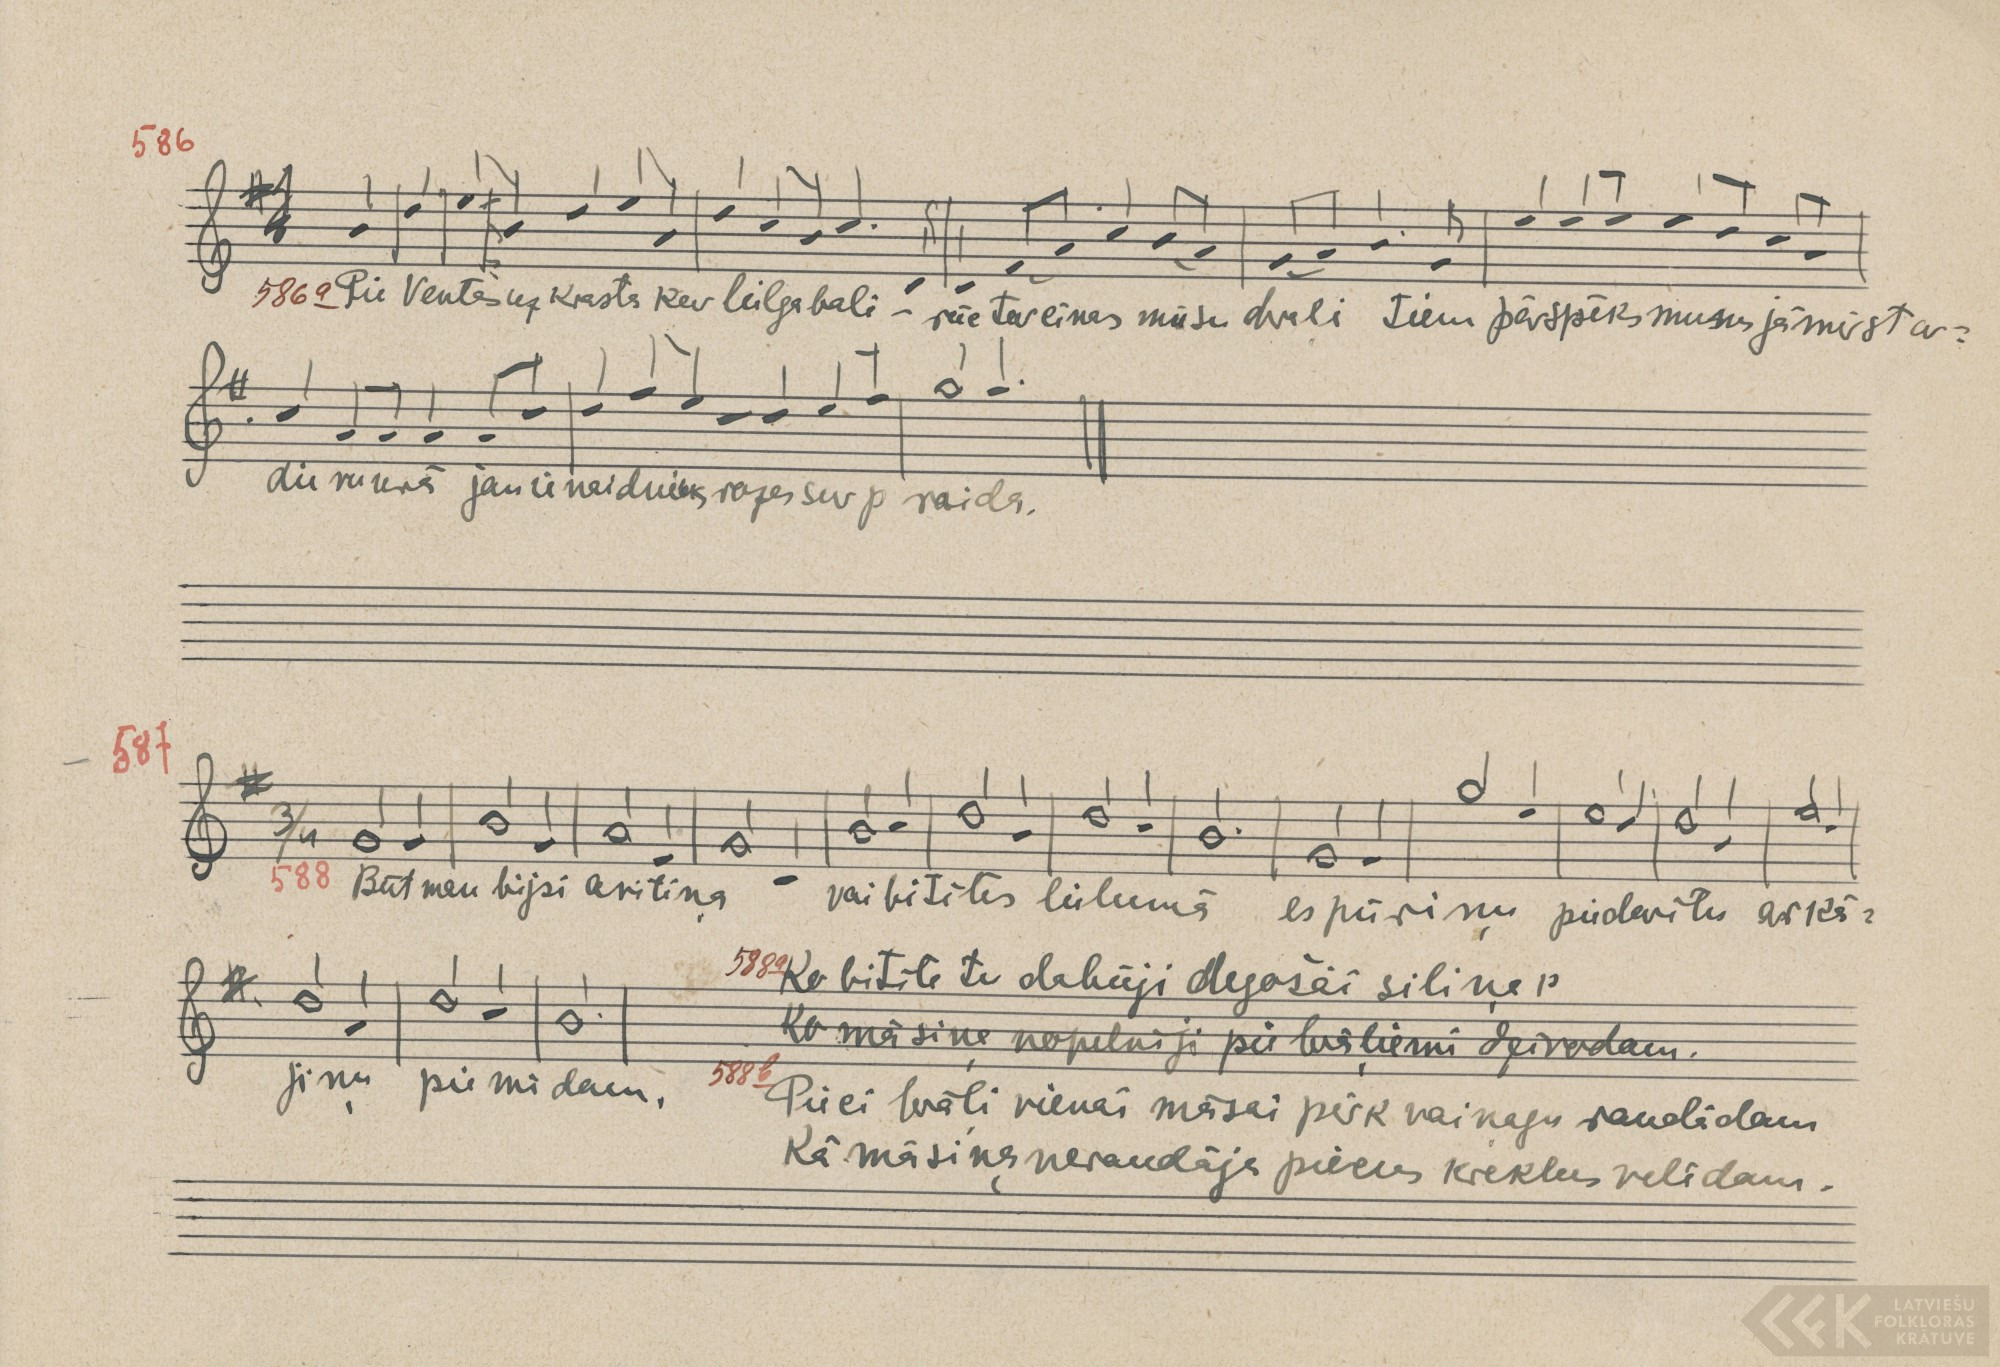 586
586a Pie Ventas uz krasta kur lielgabali -
rūc tur cīnas mūsu brāļi tiem pārspēks mums jāmirst ar=
die mūrā jau ienaidnieks rozes surp raida.
587
3/4
588 Būt man bijsi avitiņa vai bitītes lielumā es pūriņu piedarītu ar kā=
jiņu piemīdam.
588a Ko bitīte tu dabūji degošāi siliņā?
Ko māsiņa nopelnīji pie brāļiemi dzīvodam.
588b Pieci brāļi vienai māsai pērk vaiņagu raudādam
Kā māsiņa neraudāja piecus kreklus velēdam.
LATVIEŠU
FOLKLORAS
KRĀTUVE